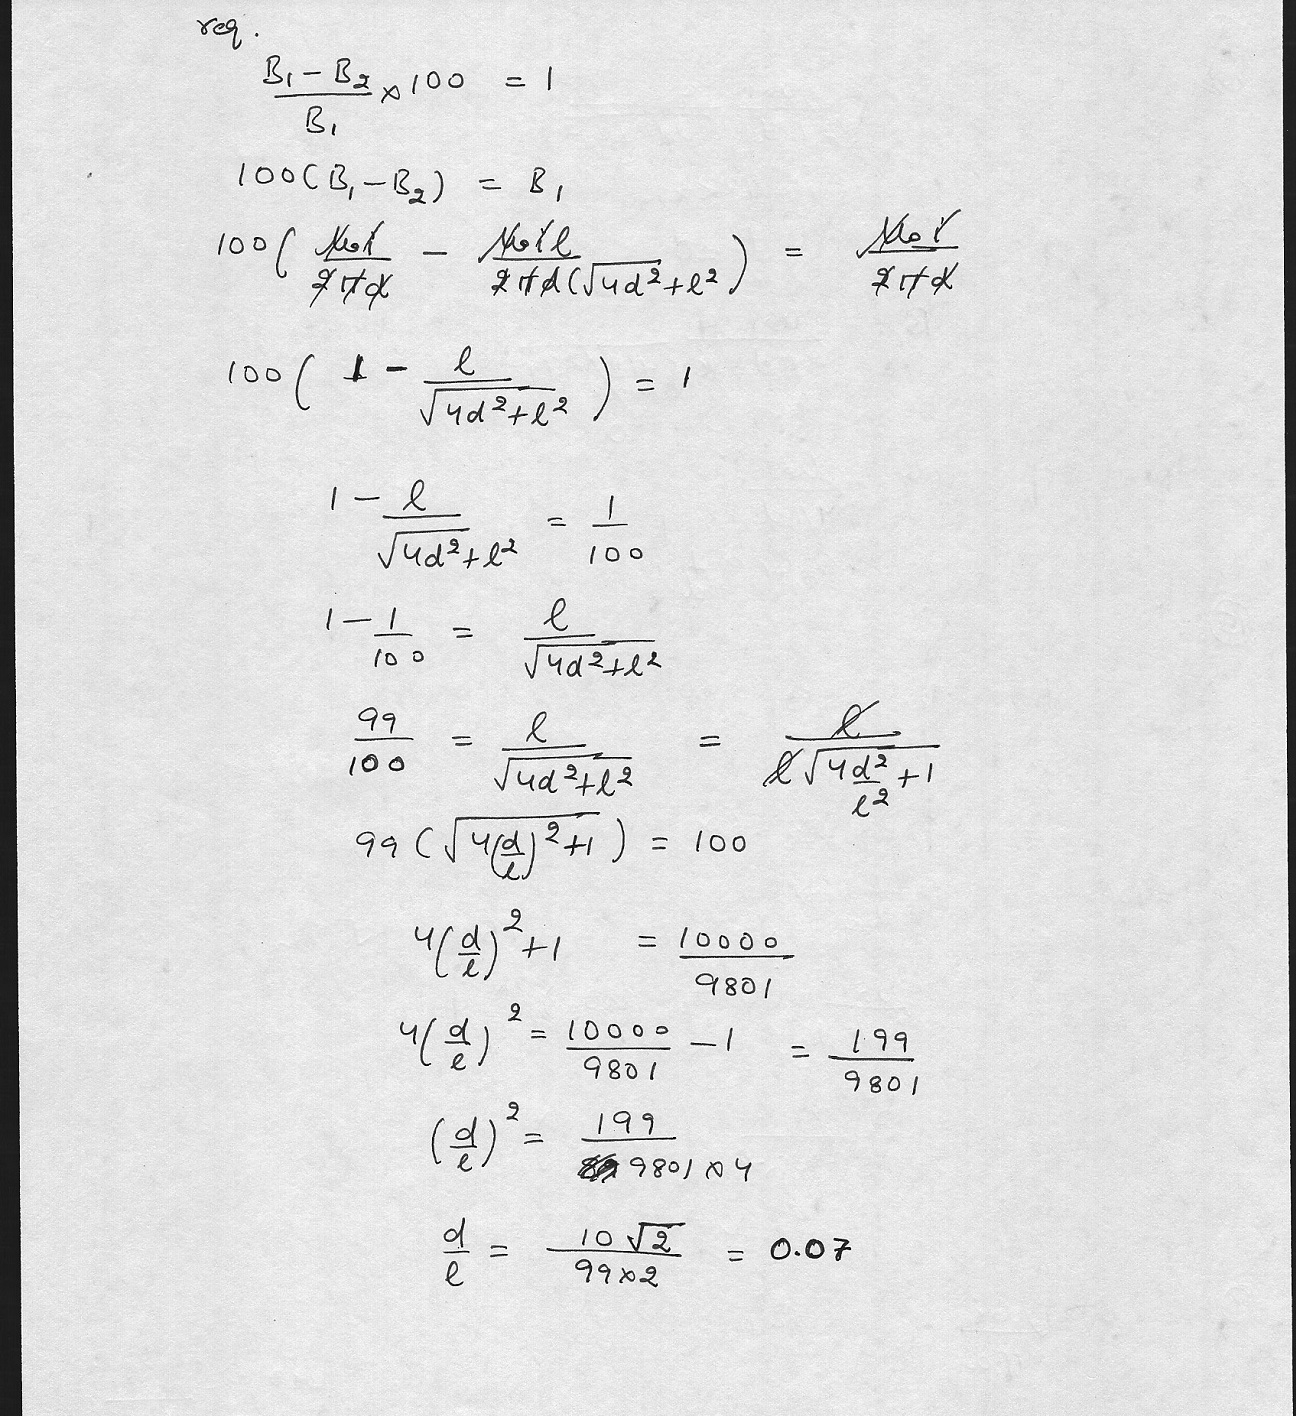 req.
B₁ - B₂ / B₁ × 100 = 1
100(B₁ - B₂) = B₁
100( μ₀i / 2πd - μ₀il / 2πd(√4d²+l²) ) = μ₀i / 2πd
100( 1 - l / √4d²+l² ) = 1
1 - l / √4d²+l² = 1 / 100
1 - 1 / 100 = l / √4d²+l²
99 / 100 = l / √4d²+l² = l / l√4d²/l² + 1
99(√4(d/l)²+1) = 100
4(d/l)²+1 = 10000 / 9801
4(d/l)² = 10000 / 9801 - 1 = 199 / 9801
(d/l)² = 199 / 9801×4
d/l = 10√2 / 99×2 = 0.07